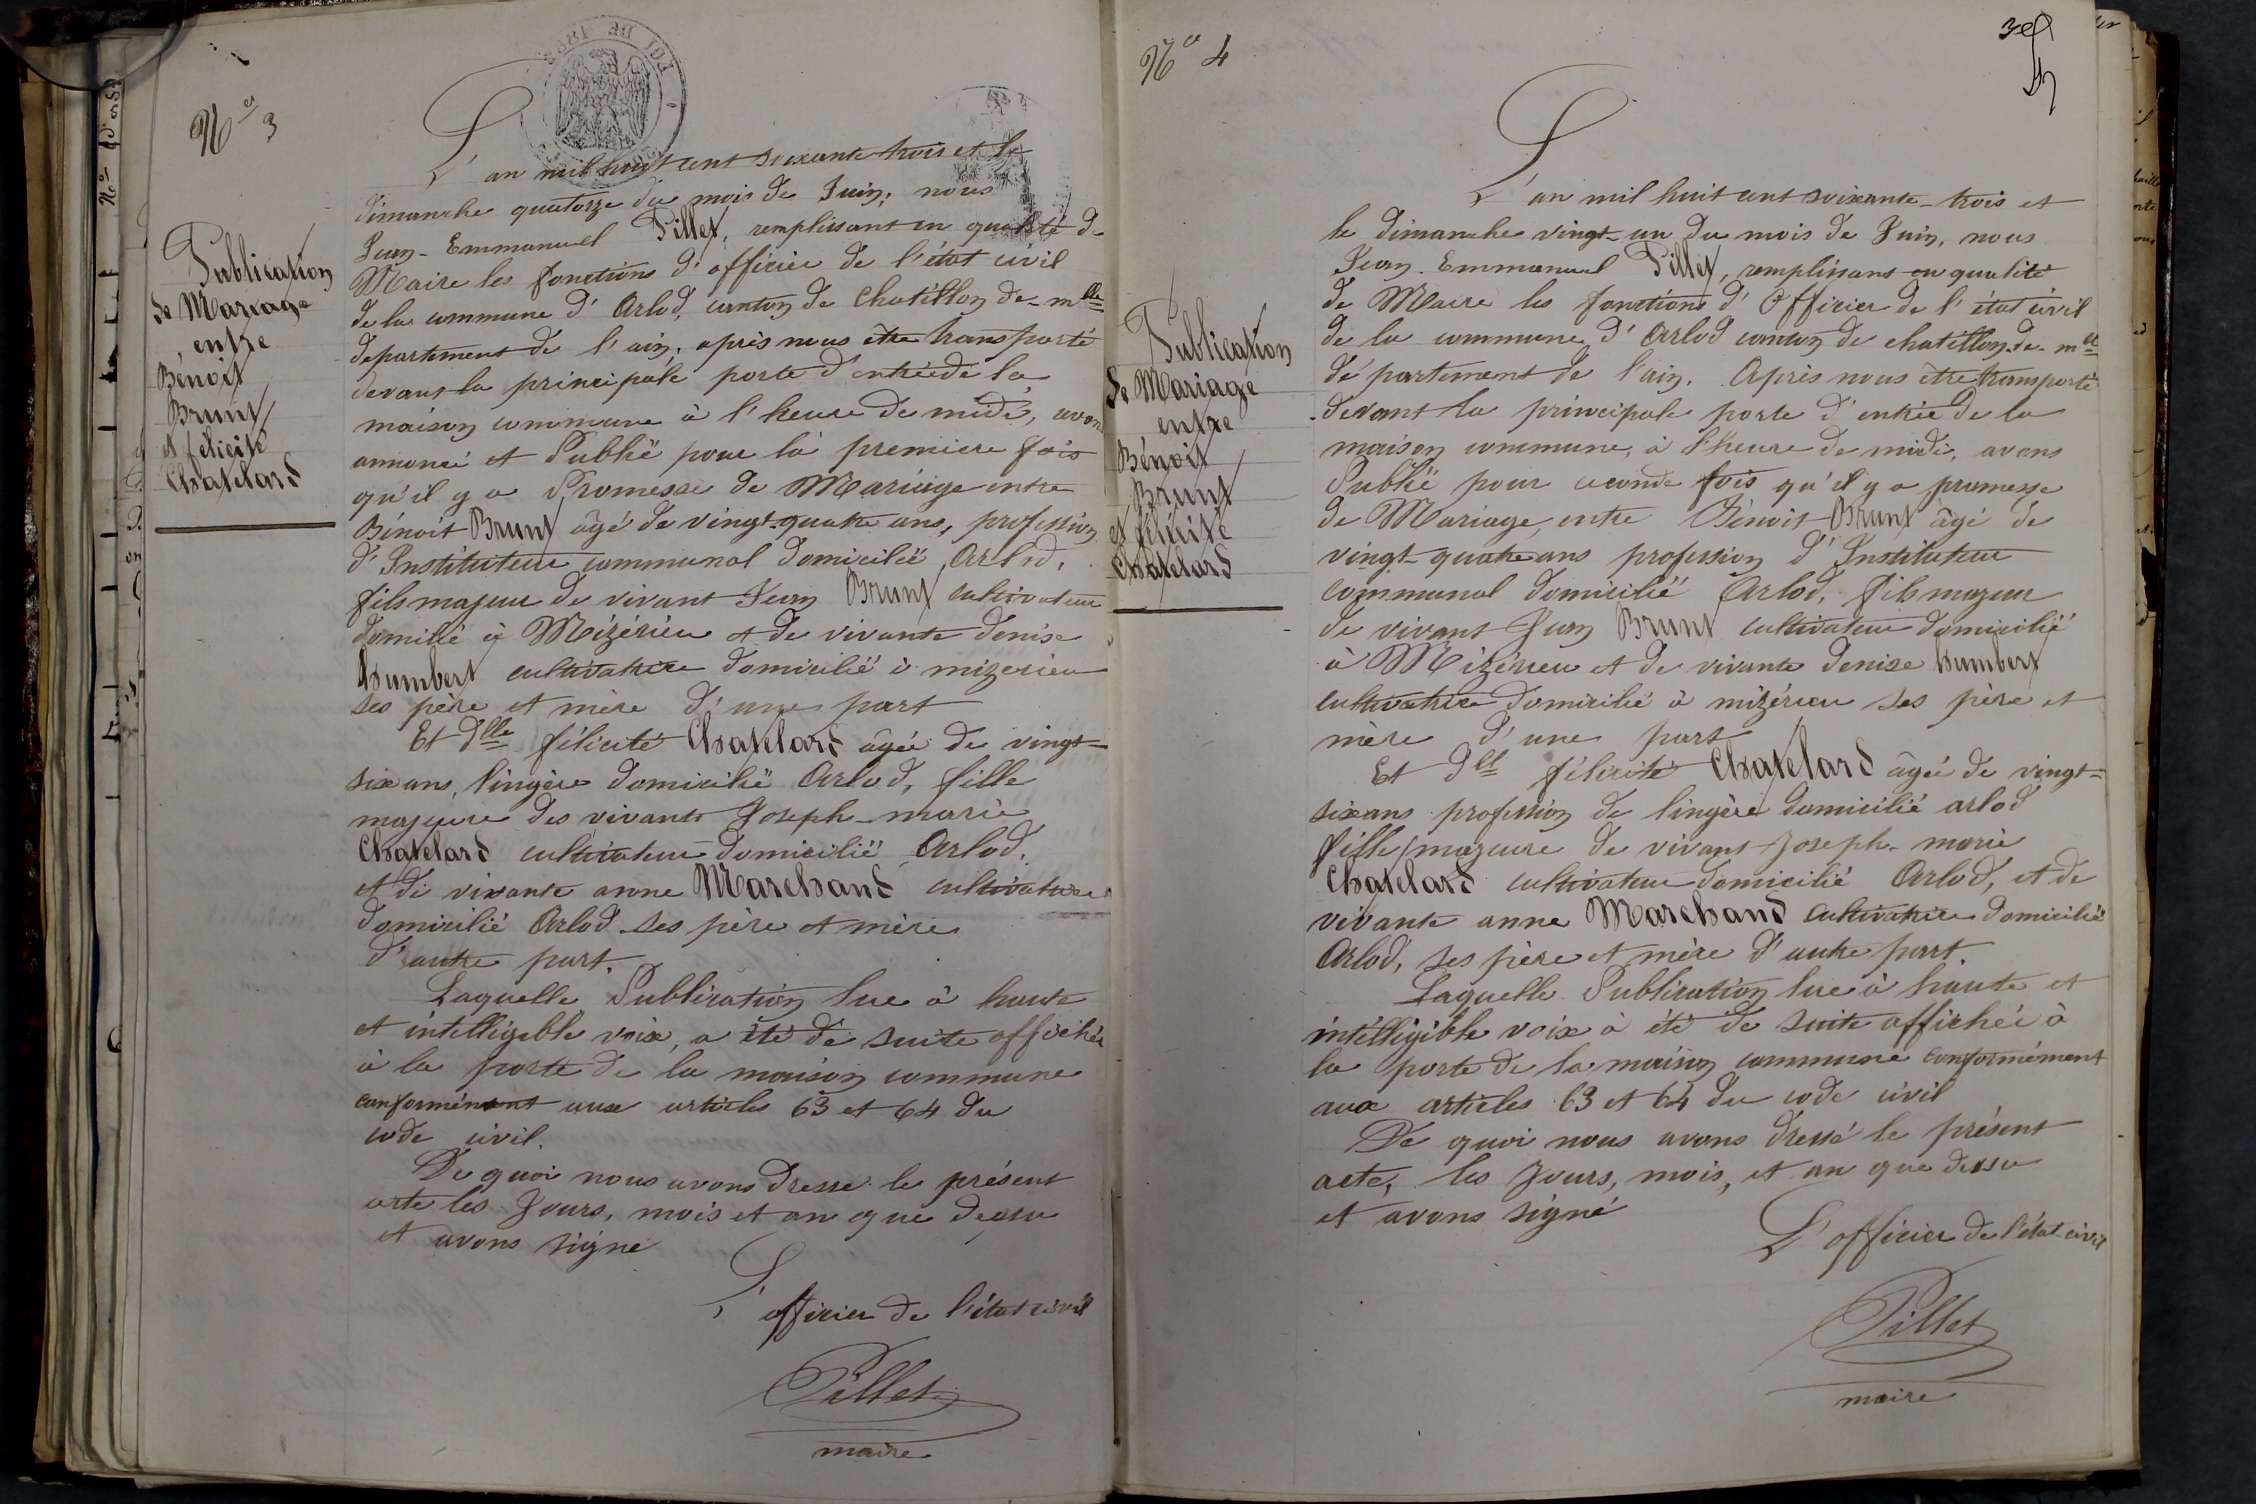 No 3
Publication
de Mariage
entre
Bénoit
Brunt
et félicité
Chatelard
L'an mil huit cent soixante trois et le
dimanche quatorze du mois de Juin, nous
Jean-Emmanuel Pillet, remplissant en qualité de
Maire les fonctions d'officier de l'état civil
de la commune d'Arlod, canton de Chatillon de-mlle
département de l'ain, après nous être transporté
devant la principale porte d'entrée de la
maison commune à l'heure de midi, avons
annoncé et Publié pour la première fois
qu'il y a Promesse de Mariage entre
Bénoit Brunt âgé de vingt-quatre ans, profession
d'Instituteur communal domicilié Arlod,
fils majeur de vivant Jean Brunt cultivateur
domilié à Mizérieu et de vivante denise
humbert cultivatrice domicilié à mizerieu
ses père et mère d'une part
Et dlle félicité Chatelard âgée de vingt-
six ans, lingère domicilié Arlod, fille
majeure des vivants Joseph-marie
Chatelard cultivateur domicilié Arlod,
et de vivante anne Marchand cultivatrice
domicilié Arlod ses père et mère
d'autre part.
Laquelle Publication lue à haute
et intelligible voix, a été de suite affichée
à la porte de la maison commune
conformément aux articles 63 et 64 du
code civil.
De quoi nous avons dressé le présent
acte les Jours, mois et an que dessu
et avons signé
L'officier de l'état civil
Pillet
maire
No 4
Publication
de Mariage
entre
Bénoit
Brunt
et félicité
Chatelard
L'an mil huit cent soixante-trois et
le dimanche vingt-un du mois de Juin, nous
Jean-Emmanuel Pillet, remplissant en qualité
de Maire les fonctions d'Officier de l'état civil
de la commune d'Arlod canton de chatillon-de-mlle
département de l'ain. Après nous être transporté
devant la principale porte d'entrée de la
maison commune, à l'heure de midi, avons
Publié pour seconde fois qu'il y a promesse
de Mariage, entre Bénoit Brunt âgé de
vingt-quatre ans profession d'Instituteur
communal domicilié Arlod, fils majeur
de vivant Jean Brunt cultivateur domicilié
à Mizérieu et de vivante denise humbert
cultivatrice domicilié à mizérieu ses père et
mère d'une part
Et dlle félicité Chatelard âgée de vingt-
six ans profession de lingère domicilié arlod
fille majeure de vivant Joseph-marie
Chatelard cultivateur domicilié Arlod, et de
vivante anne Marchand cultivatrice domicilié
Arlod, ses père et mère d'autre part.
Laquelle Publication lue à haute et
intélligible voix à été de suite affichée à
la porte de la maison commune conformément
aux articles 63 et 64 du code civil
De quoi nous avons dressé le présent
acte, les Jours, mois, et an que dessu
et avons signé
L'officier de l'état civil
Pillet
maire